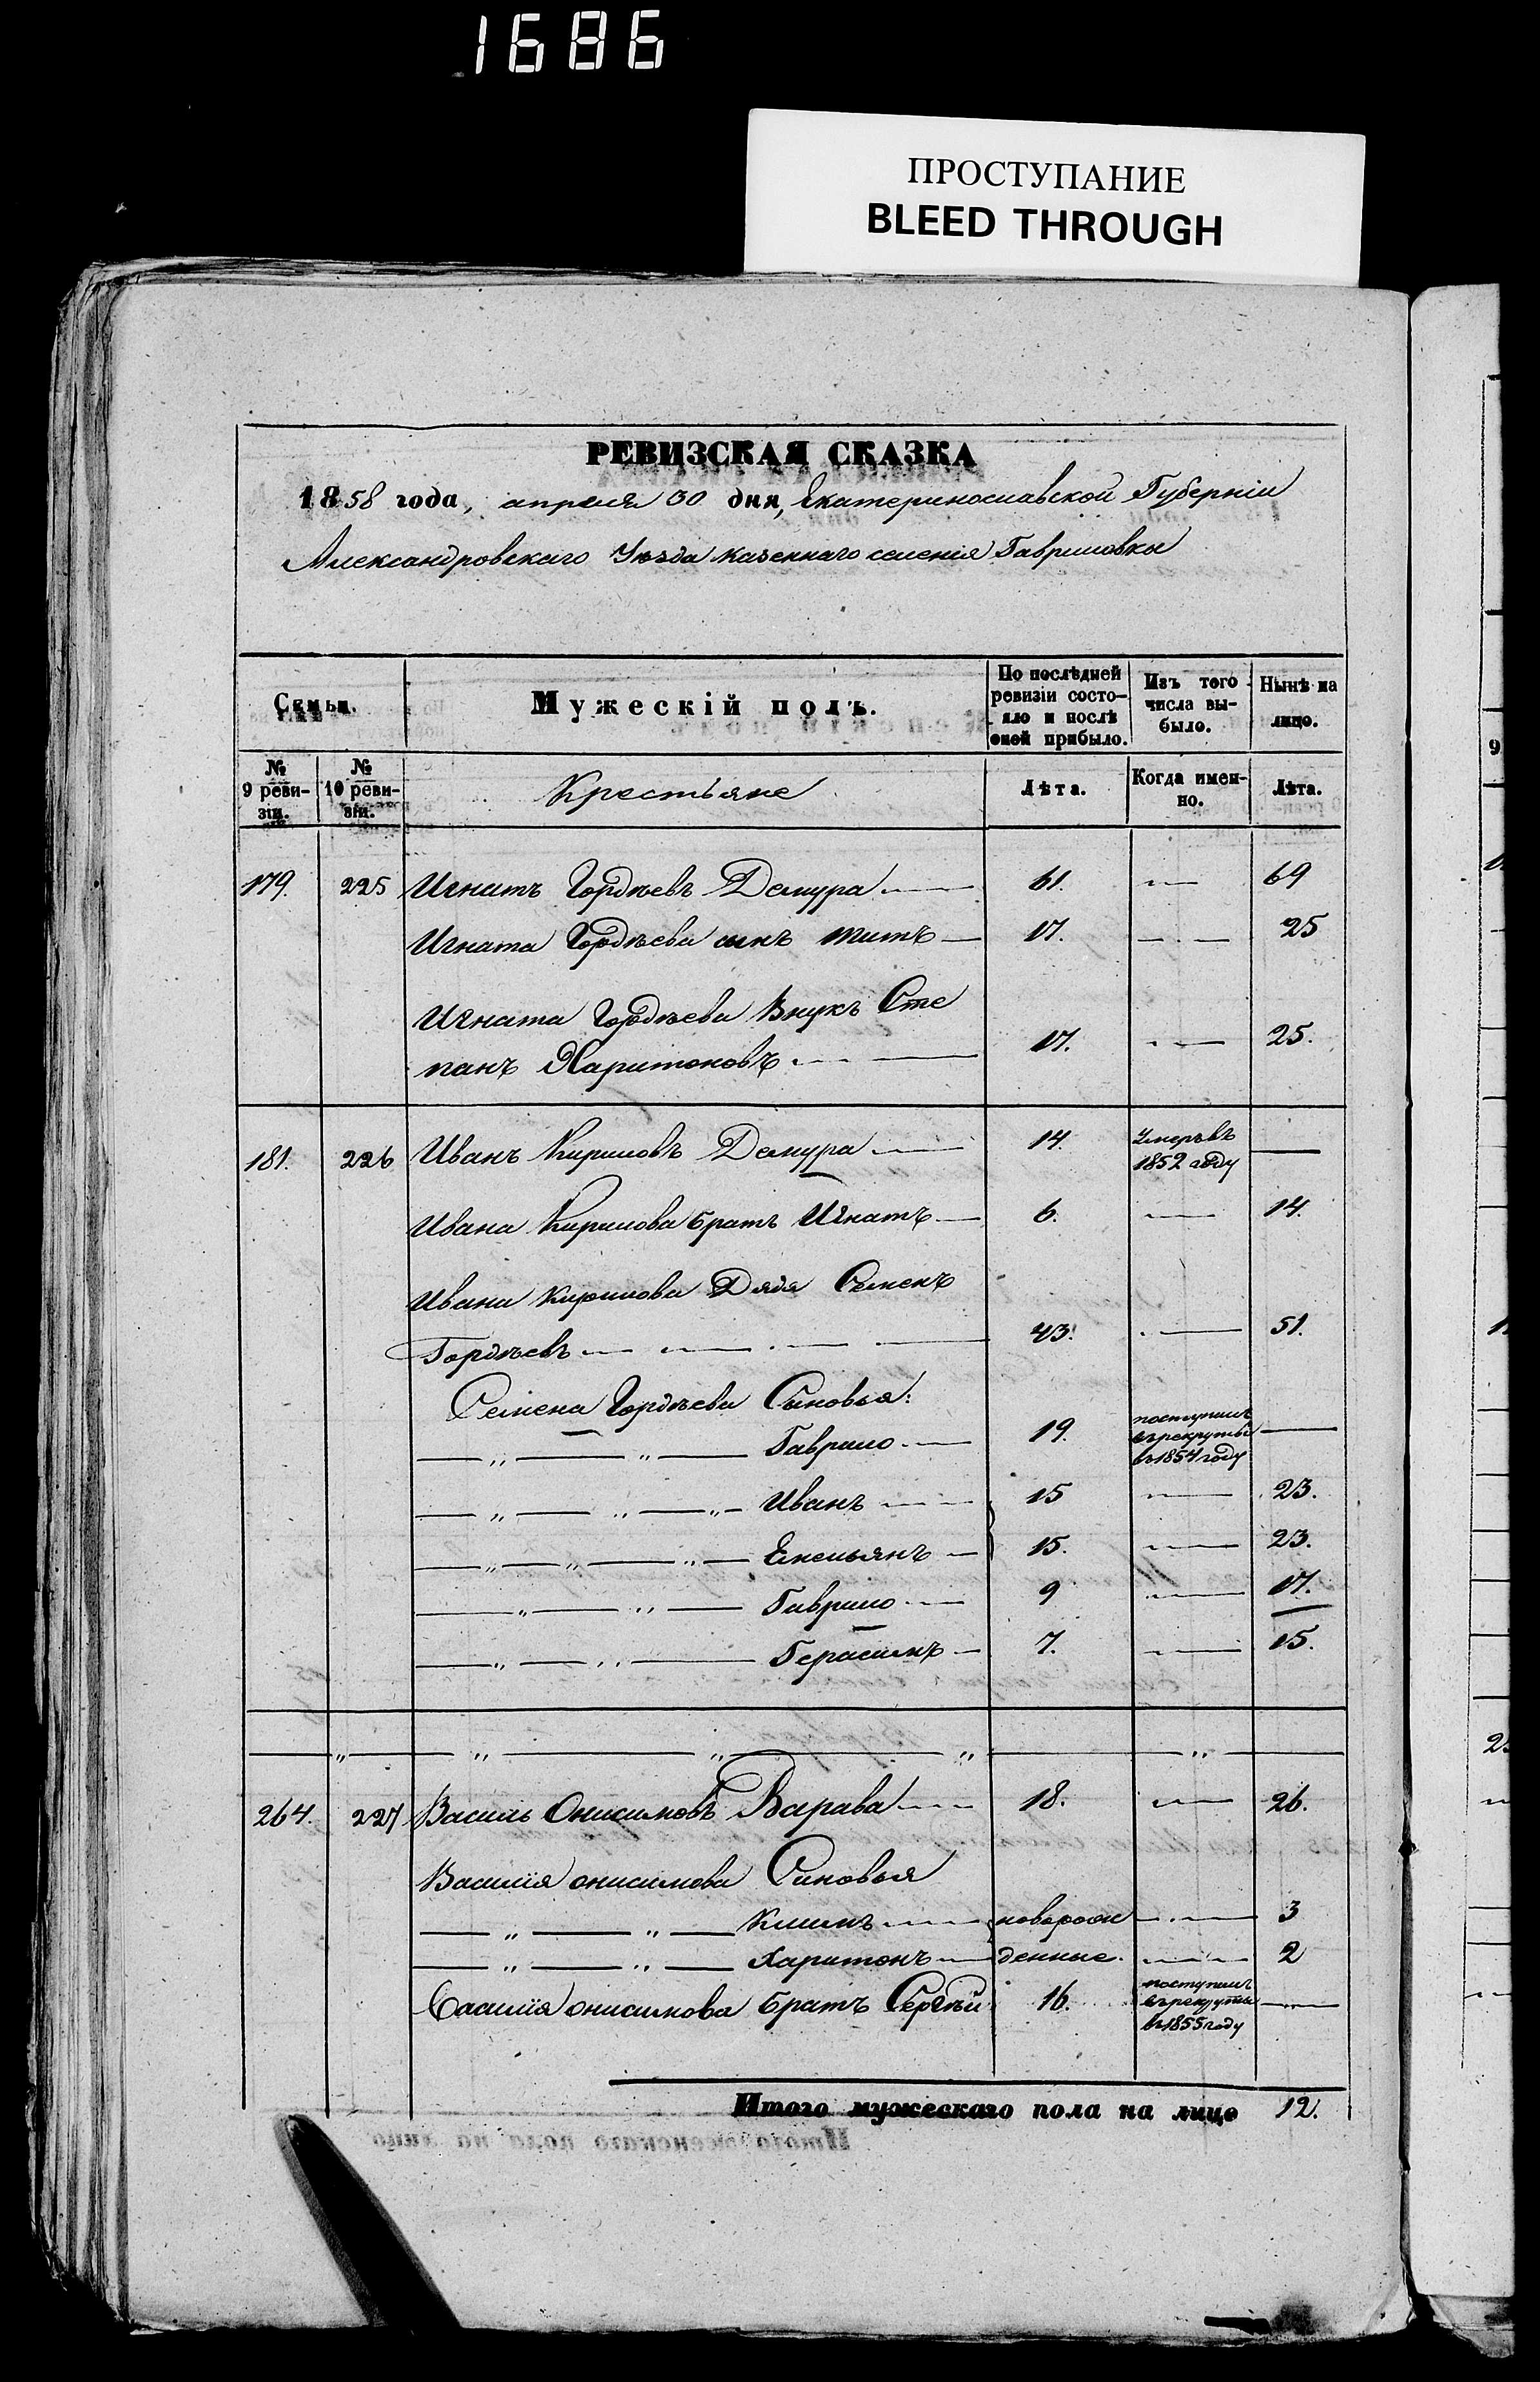 1686
ПРОСТУПАНИЕ
BLEED THROUGH
РЕВИЗСКАЯ СКАЗКА
1858 года, апреля 30 дня, Екатеринославской Губерніи
Александровскаго Уѣзда казеннаго селенія Гавриловки
Семьи.
Мужескій полъ.
По послѣдней ревизіи состояло и послѣ оной прибыло.
Изъ того числа выбыло.
Нынѣ на лицо.
№ 9 ревизіи.
№ 10 ревизіи.
Крестьяне
Лѣта.
Когда именно.
Лѣта.
179. 225 Игнатъ Гордѣевъ Демура 61. 69
Игната Гордѣева сынъ Титъ 17. 25
Игната Гордѣева Внукъ Сте
панъ Харитоновъ 17. 25.
181. 226 Иванъ Кириловъ Демура 14. Умеръ въ 1852 году
Ивана Кирилова братъ Игнатъ 6. 14.
Ивана Кирилова Дядя Семенъ
Гордѣевъ 43. 51.
Семена Гордѣева Сыновья:
„ „ Гаврило 19. поступилъ въ рекруты въ 1854 году
„ „ „ Иванъ 15 23.
„ „ „ Емельянъ 15. 23.
„ „ Гаврило 9 17.
„ „ Герасимъ 7. 15.
„ „ „ „ „
264. 227 Василь Онисимовъ Варава 18. 26.
Василія онисимова Сыновья
„ „ Климъ новорож 3
„ „ Харитонъ денные. 2
Василія онисимова братъ Сергѣй 16. поступилъ въ рекруты въ 1855 году
Итого мужескаго пола на лицо 12.